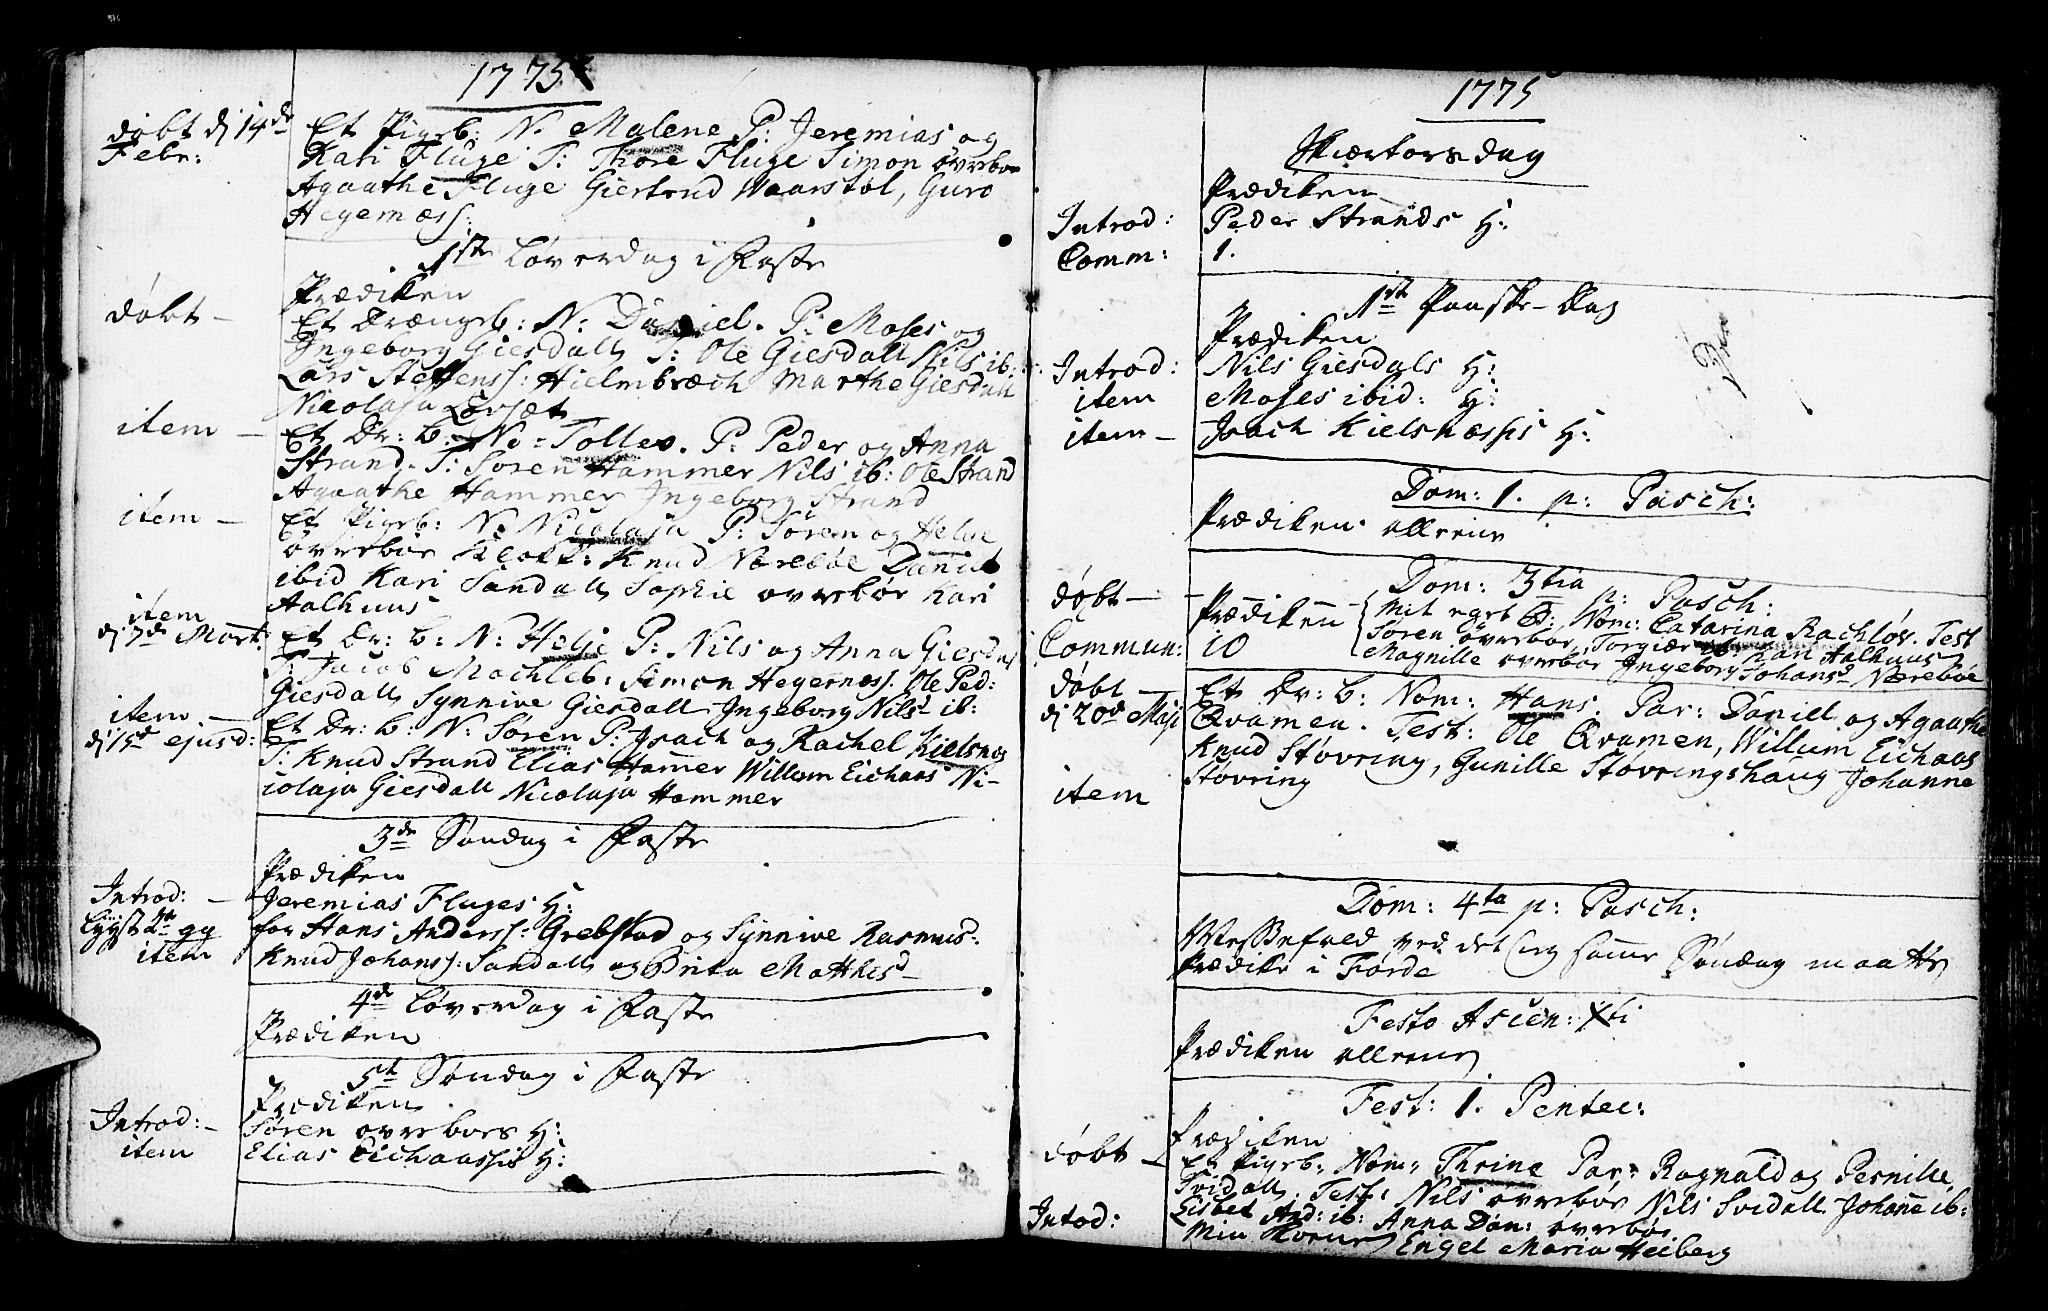 1775
døbt d 14de Et Pigeb: N. Malene P: Jeremias og
Febr: Kari Fluge T: Thore Fluge Simon øvrebøe
Agaathe Fluge Giertrud Waarstøl, Guro
Hegernæss:
1ste Løverdag i Faste
Prædiken
døbt – Et Drængeb: N. Daniel. P: Moses og
Ingeborg Giesdall T: Ole Giesdall Nils ib:
Lars Steffenss: Hielmbræch Marthe Giesdall
Nicolaja
item – Et Dr: b: N: Tollev. P: Peder og Anna
Strand. T: Søren Hammer Nils ib: Ole Strand
Agaathe Hammer Ingeborg Strand
item – Et Pigeb: N: Nicolaja P: Søren og Helge
øvrebøe Klokk: Knud Nærebøe Daniel
ibid Kari Sandall Sophie øvrebøe Kari
Aalhuus
item
d 7de Mart: Et Dr: b: N: Helje P: Nils og Anna Giesdal
T: Jacob Machlib: Simon Hegernæss: Ole Ped:
Giesdall Synnive Giesdall Ingeborg Nilsd ib:
item –
d 15d ejusd: Et Dr: b: N: Søren P: Isach og Rachel Kielsnes
T: Knud Strand Elias Hamer Willum Eichaas Ni-
colaja Giesdall Nicolaja Hammer
3de Søndag i Faste
Prædiken
Introd: – Jeremias Fluges H:
Lyyst 1te gg for Hans Anderss: Grebstad og Synnive Rasmusd:
item Knud Johanss: Sandall og Brita Matthesd
4de Løverdag i Faste
Prædiken
5te Søndag i Faste
Prædiken
Introd: – Søren øvrebøes H:
item Elias Eichaassis H:
1775
Skiærtorsdag
Prædiken
Introd: Peder Strands H:
Comm: 1.
1ste Paaske-Dag
Prædiken
Introd: Nils Giesdals H:
item Moses ibid: H:
item – Isach Kielsnæssis H:
Dom: 1. p: Pasch:
Prædiken allene
Dom: 3tia p: Pasch:
døbt – Prædiken Mit eget B: Nom: Catarina Rachløv. Test
Commun: 10 Søren øvrebøe, Torgier ib: Kari Aalhuus
Magnille øvrebøe Ingeborg Johansd Nærebøe
døbt –
d 20de Maji Et Dr: b: Nom: Hans. Par: Daniel og Agaathe
Qvamen. Test: Ole Qvamen, Willum Eichaas
Knud Støvring, Gunille Støvringshaug Johanne
Støvring
item
Dom: 4ta p: Pasch:
ved det samme Søndag maatte
Prædike i Førde
Festo Ascen: Xti
Prædiken allene
Fest: 1. Pentec:
Prædiken
døbt – Et Pigeb: Nom: Thrine Par: Ragnald og Pernille
Svidall. Test: Nils øvrebøe Nils Svidall Johane ib:
Lisbet And: ib: Anna Dan: øvrebøe
Intod: Min Kone Engel Maria Heiberg